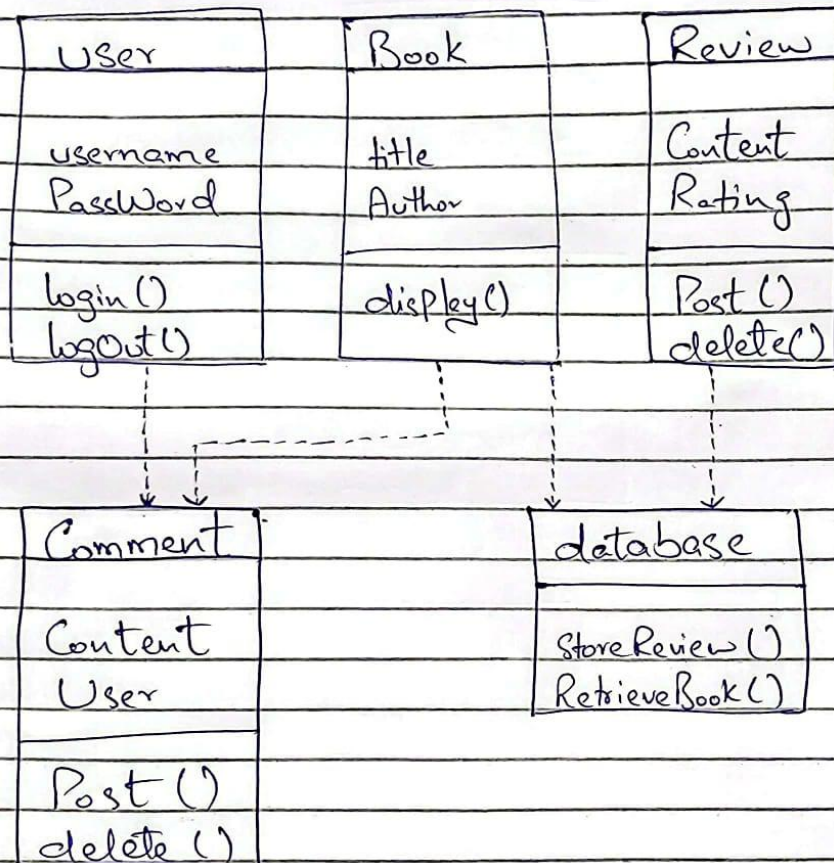 User
username
PassWord
login()
logOut()
Book
title
Author
display()
Review
Content
Rating
Post()
delete()
Comment
Content
User
Post()
delete()
database
StoreReview()
RetrieveBook()